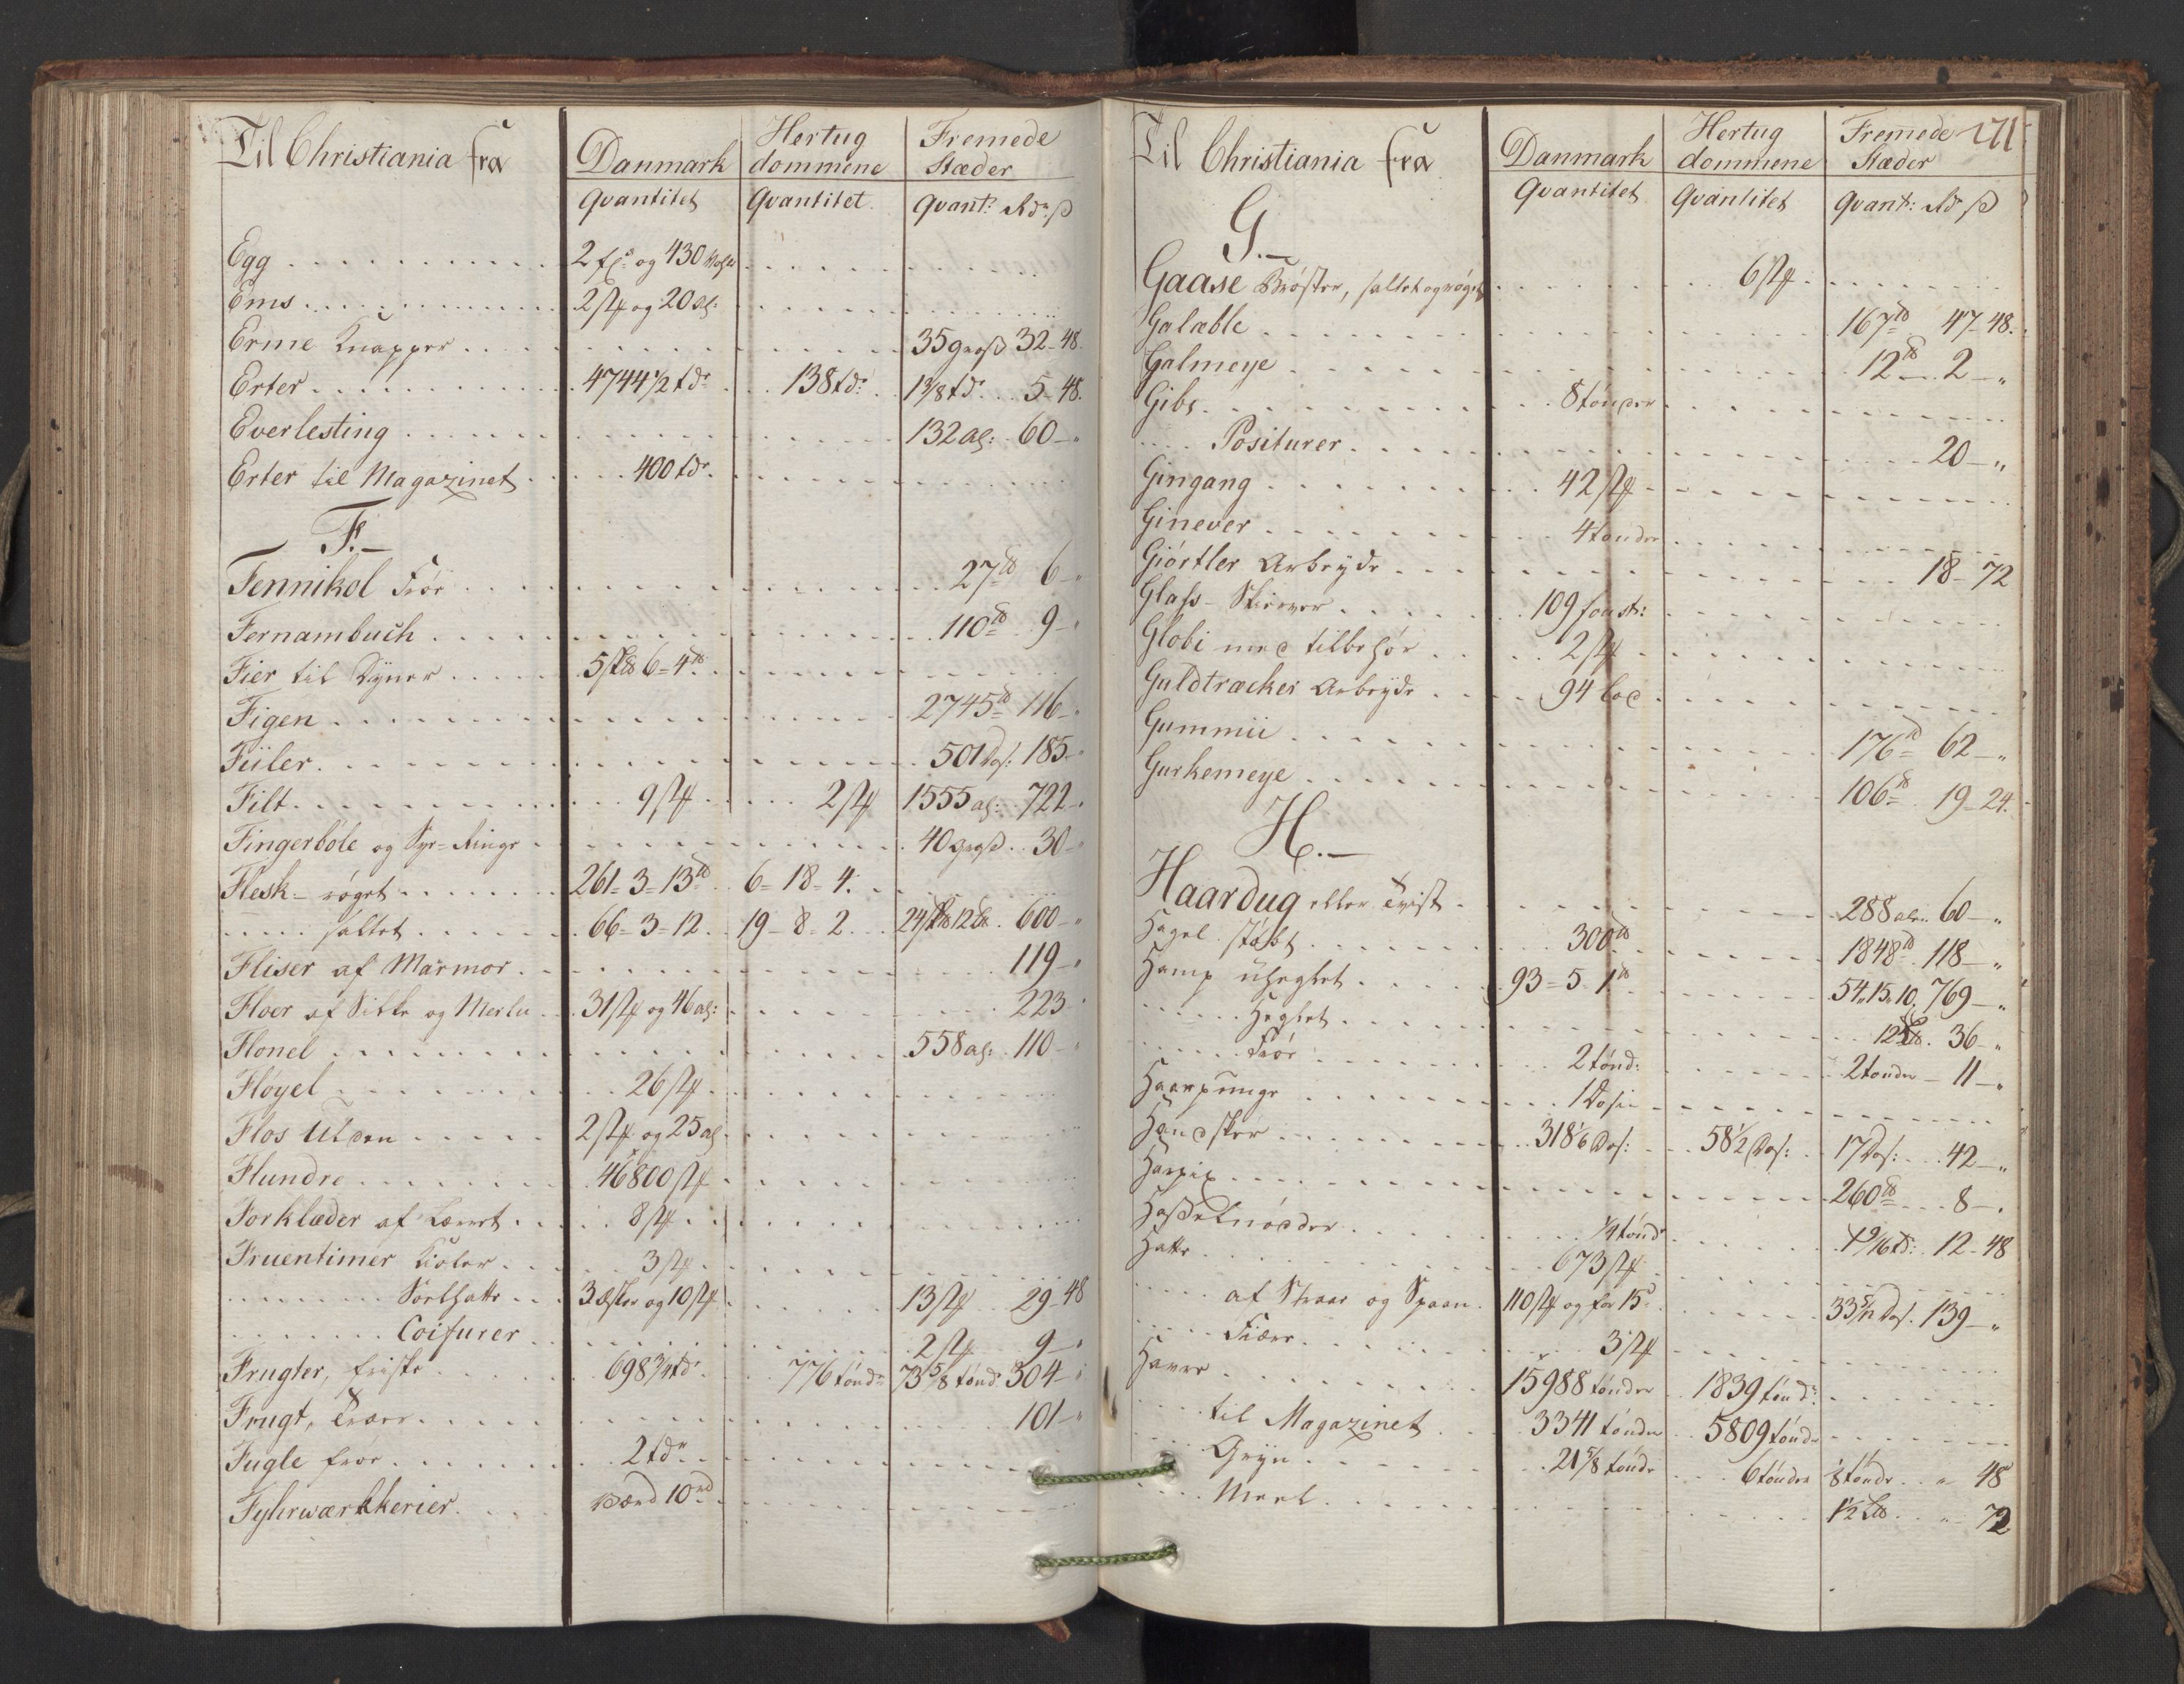 Til Christiania fra | Danmark | Hertug dommene | Fremede Stæder
Qvantitet | Qvantitet | Qvant: Rdr ß
Egg | 2 og 430
Ems | 2 stk og 20 al:
Erme Knapper | 35 gross 32 - 48.
Erter | 4744 1/2 tdr | 138 tdr: | 1 3/8 tdr 5 - 48.
Everlesting | 132 al: 60 - "
Erter til Magazinet | 400 tdr.
F. -
Fennikol Frör | 27 ℔ 6 - "
Fernambuch | 110 ℔ 9 - "
Fier til Dyner | 5 6 = 4 ℔
Figen | 2745 ℔ 116 - "
Fiiler | 501 Dos: 185 - "
Filt | 9 stk | 2 stk | 1555 al: 722 - "
Fingerböle og Sye-Ringe | 40 gross 30 - "
Flesk - röget | 261 = 3 = 13 ℔ | 6 = 18 = 4.
saltet | 66 = 3 = 12 | 19 - 8 = 2 | 24 12 600 - "
Fliser af Marmor | 119 - "
Floer af Silke og Merlu | 31 stk og 46 al: | 223 - "
Flonel | 558 al: 110 - "
Fløyel | 26 stk
Flos Ulden | 2 stk og 25 al
Flundre | 46800 stk
Forklæder af Lærret | 8 stk
Fruentimer Kioler | 3 stk
Soelhatte | 3 Æsker og 10 stk | 13 stk 29 - 48
Coifurer | 2 stk 9 - "
Frugter, friske | 698 3/4 tdr | 776 tönd: | 73 5/8 tönd: 304 - "
Frugt, Træer | 101 - "
Fugle frör | 2 tdr
Fyhrwærkkerier | værd 10 rd
Til Christiania fra | Danmark | Hertug dommene | Fremede Stæder | 171
Qvantitet | Qvantitet | Qvant: Rd ß
G. -
Gaase Bröster, saltet og röget | 6 stk
Galæble | 167 ℔ 47 - 48.
Galmeye | 12 ℔ 2 - "
Gibs | 8 tönder
Positurer | 20 - "
Gingang | 42 stk
Ginever | 4 tönder
Giörtler Arbeyde | 18 - 72
Glass - Skiever | 109 
Globi med tilbehör | 2 stk
Guldtrækker Arbeyde | 94 lod
Gummii | 176 ℔ 62 - "
Gurkemeye | 106 ℔ 19 - 24.
H. -
Haardug eller Tvist | 288 al: 60 - "
Hagel støbt | 300 ℔ | 1848 ℔ 118 - "
Hamp uheglet | 93 = 5 - 1 ℔ | 54 " 15 " 10. 769 - "
Heglet | 12 36 - "
Frör | 2 tönd: | 2 tönder - 11 - "
Haarpunge | 1 Dosin
Handsker | 318 1/6 Dos: | 58 1/2 Dos: | 17 Dos: 42 - "
Harpix | 260 ℔ 8 - "
Hasselnödder | 1/4 tönd | 4 9/16 td: 12 - 48
Hatte | 673 stk
af Straae og Spaan | 110 stk og for 15 rd | 33 5/12 Dos. 139 - "
Fiær | 3 stk
Havre | 15988 tönder | 1839 tönd:
til Magazinet | 3341 tönder | 5809 tönd:
Gryn | 21 5/8 tönde | 6 tönder | 1/8 tönde " 48
Meel | 1 1/2 L℔ " - 72